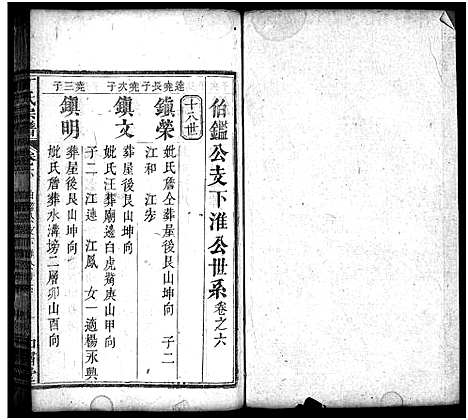 伯鑑公支下淮公世系 卷之六
十八世
達堯長子 鎮榮
妣氏詹仝葬屋後艮山坤向 子二
江和 江安
堯次子 鎮文
葬屋後艮山坤向
妣氏汪葬廟邊白虎鶩庚山甲向
子二 江達 江鳳 女一適楊永興
堯三子 鎮明
葬屋後艮山坤向
妣氏詹葬水溝塝二層卯山酉向
氏宗譜